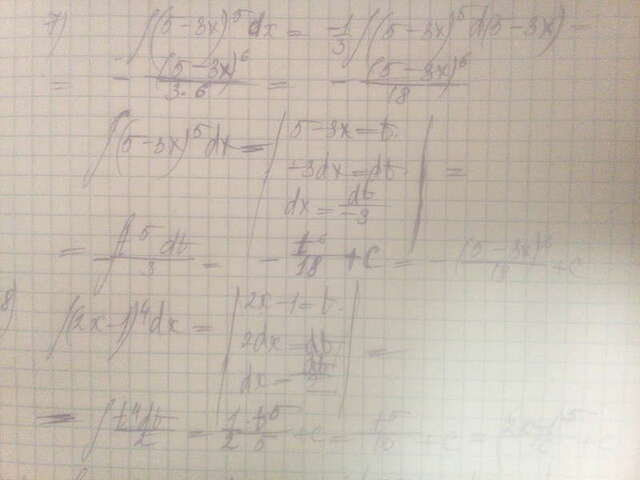 7) ∫(5-3x)^5 dx = -1/3 ∫(5-3x)^5 d(5-3x) =
= - (5-3x)^6 / 3·6 = - (5-3x)^6 / 18
∫(5-3x)^5 dx = | 5-3x=t
-3dx=dt
dx = dt/-3 | =
= ∫ t^5 dt / 3 = - t^6/18 + C = - (5-3x)^6 / 18 + C
8) ∫(2x-1)^4 dx = | 2x-1=t
2dx=dt
dx = dt/2 | =
= ∫ t^4 dt / 2 = 1/2 t^5/5 + C = t^5/10 + C =